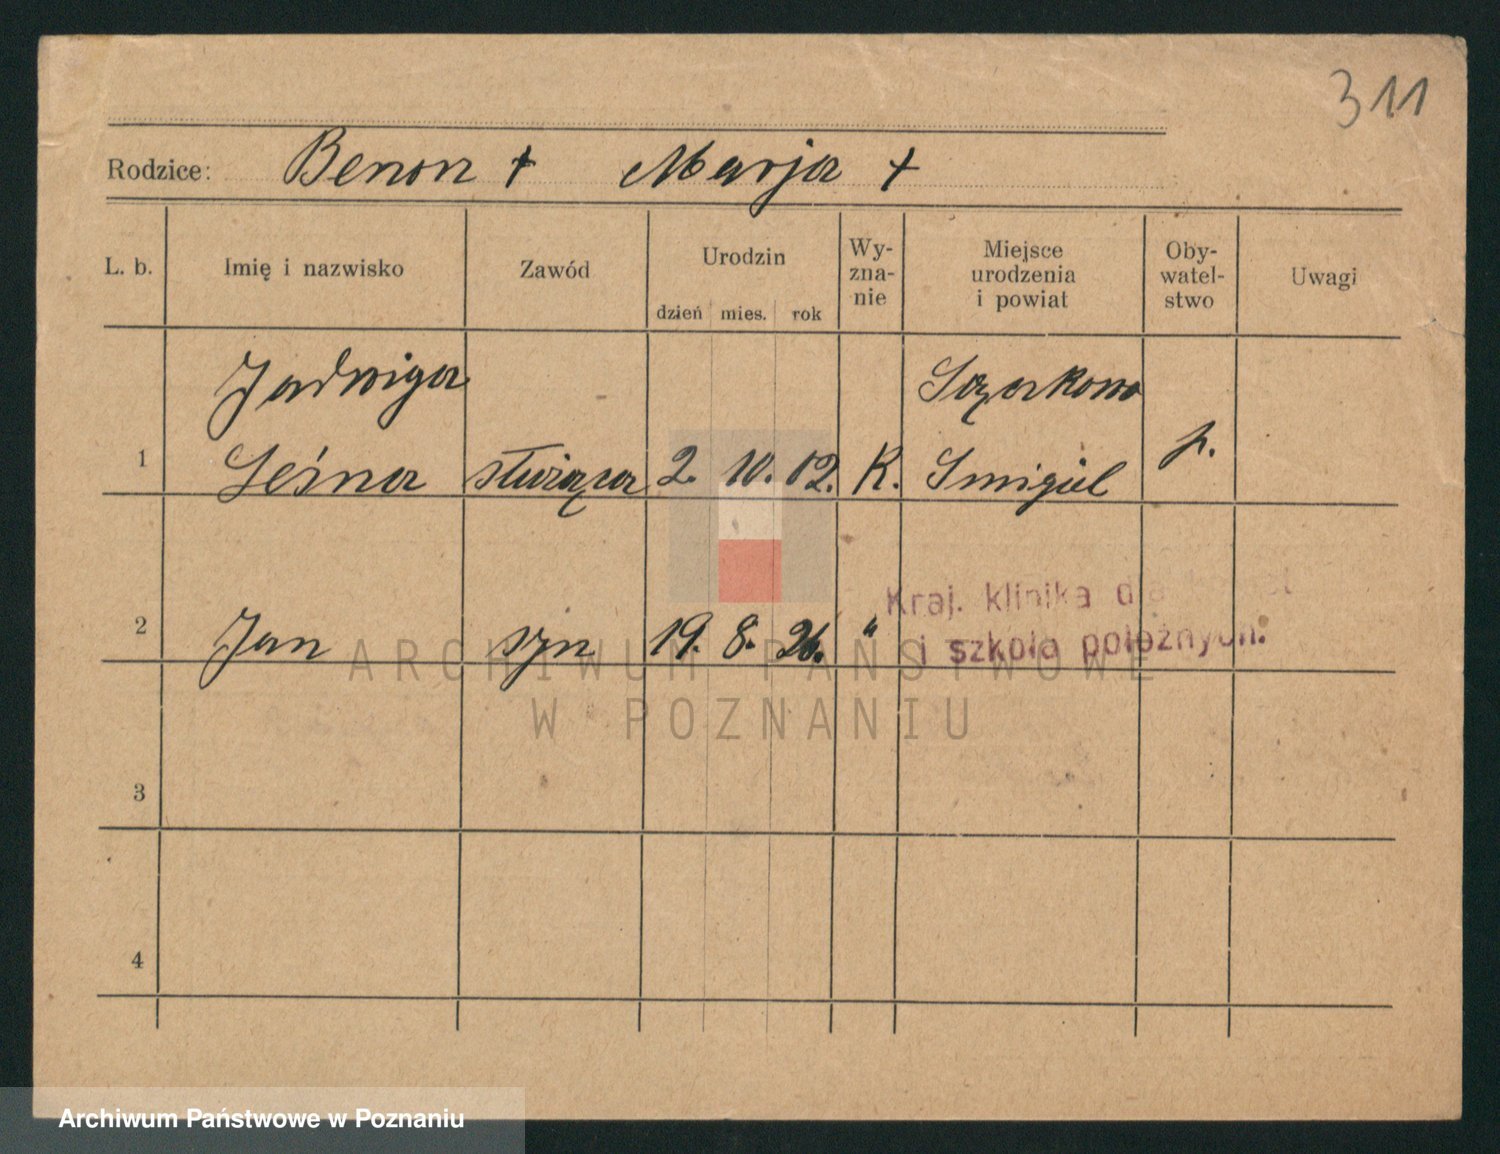 311
Rodzice: Benon + Marja +
L. b. Imię i nazwisko Zawód Urodzin dzień mies. rok Wy-zna-nie Miejsce urodzenia i powiat Oby-watel-stwo Uwagi
Jadwiga
1 Leśna służąca 2. 10. 02. K. Śmigiel p.
2 Jan syn 19. 8. 26. "
Kraj. klinika dla
i szkoła położnych.
3
4
ARCHIWUM PAŃSTWOWE
W POZNANIU
Archiwum Państwowe w Poznaniu